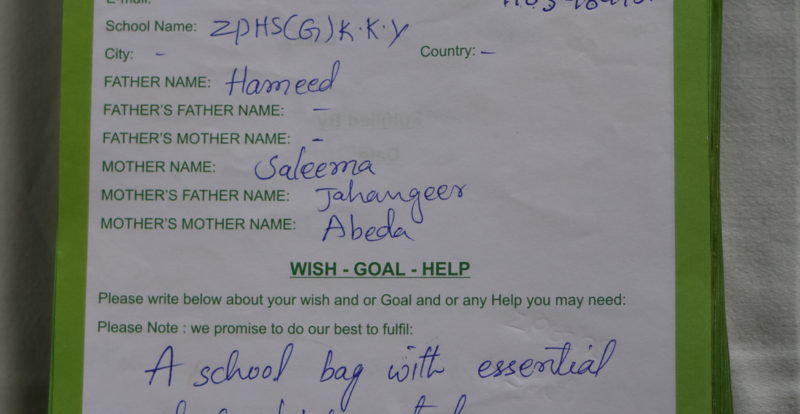 E-mail:
School Name: ZPHS(G) K.K.Y
City: - Country: -
FATHER NAME: Hameed
FATHER'S FATHER NAME: -
FATHER'S MOTHER NAME: -
MOTHER NAME: Saleema
MOTHER'S FATHER NAME: Jahangeer
MOTHER'S MOTHER NAME: Abeda
WISH - GOAL - HELP
Please write below about your wish and or Goal and or any Help you may need:
Please Note : we promise to do our best to fulfil:
A school bag with essential